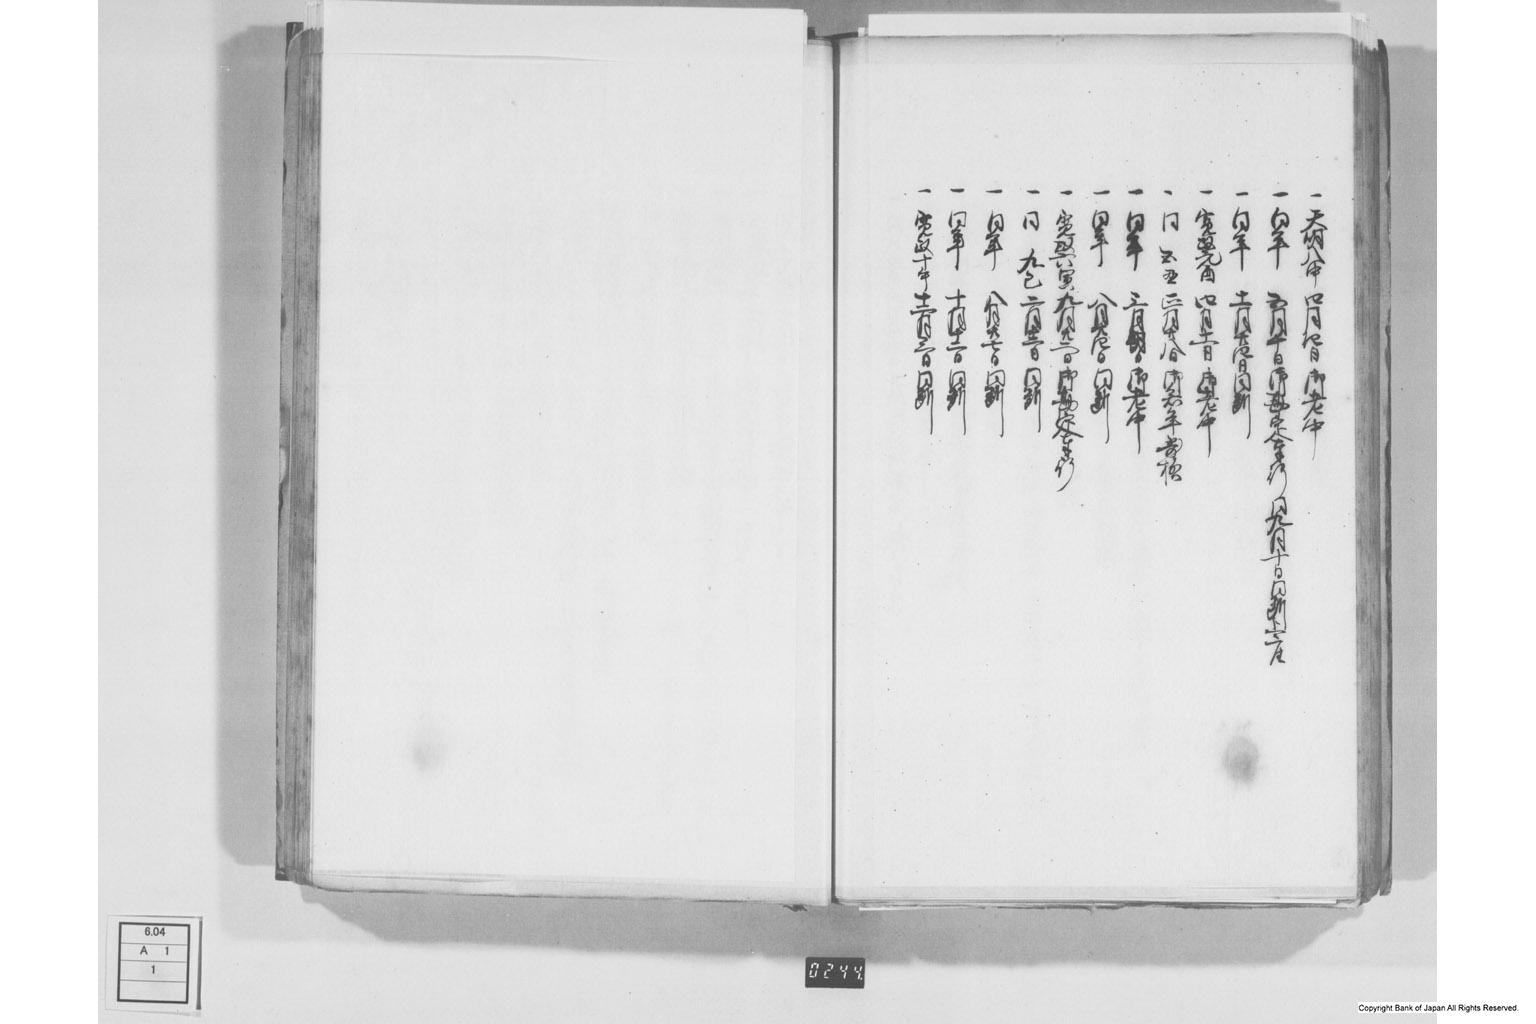 一 天明八申 四月四日 御老中
一 同年 五月十日 御勘定奉行 同九月十日 同断
一 同年 十一月廿四日 同断
一 寛政元酉 四月十一日 御老中
一 同 五丑 正月廿八日 御若年寄様
一 同年 三月朔日 御老中
一 同年 八月廿四日 同断
一 寛政六寅 九月廿二日 御勘定奉行
一 同 九巳 二月十二日 同断
一 同年 八月廿七日 同断
一 同年 十月十二日 同断
一 寛政十午 十二月二日 同断
6.04
A 1
1
0244
Copyright Bank of Japan All Rights Reserved.